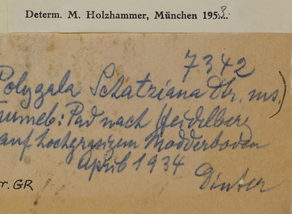 Determ. M. Holzhammer, München 1952.
7342
Polygala Schatziana Dtr. ms.)
Tsumeb: Pad nach Heidelberg
auf hochgrasigem Modderboden
April 1934
Dinter
r. GR